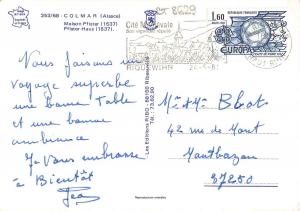 253/68 - COLMAR (Alsace)
Maison Pfister (1537)
Pfister-Haus (1537)
Cité Médiévale
RIQUEWIHR
REPUBLIQUE FRANÇAISE
1,60
EUROPA
Vous faisons un
voyage superbe
une bonne Table
et une bonne
ambiance
Je Vous embrasse
à Bientôt
Léa
Les Editions RISO - 68100
Mr & Mme Blot
42 rue de Mont
Montbazon
37250
Reproduction interdite